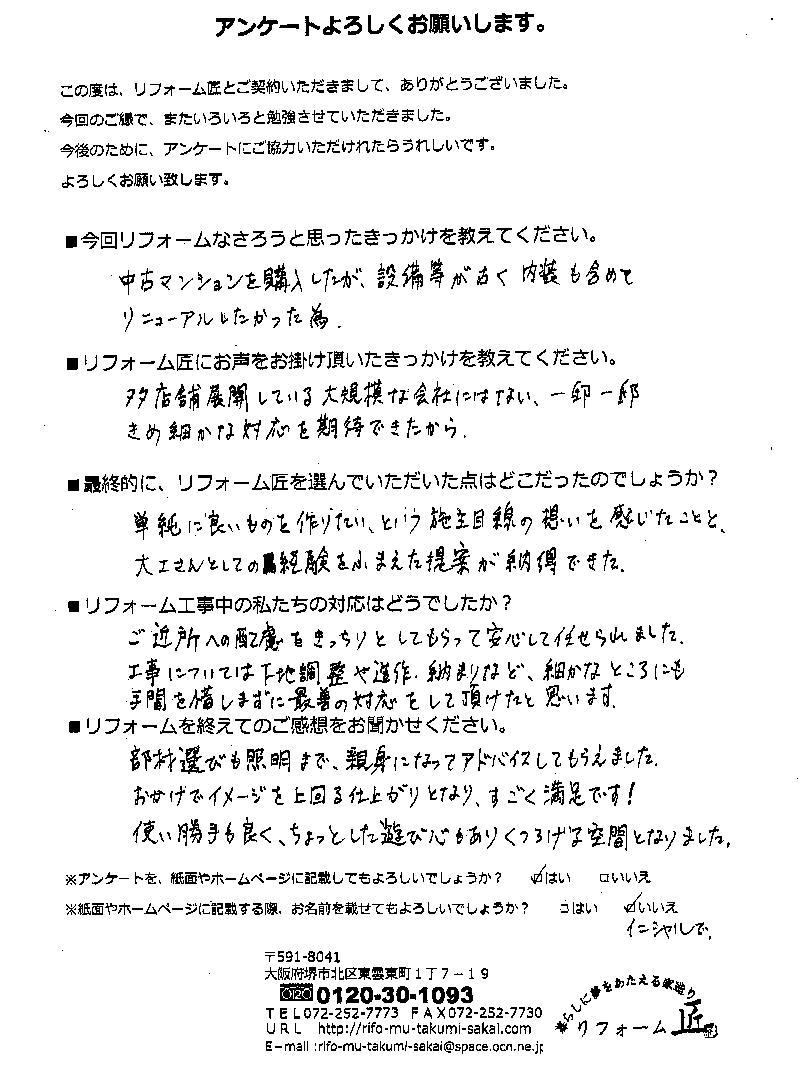 アンケートよろしくお願いします。
この度は、リフォーム匠とご契約いただきまして、ありがとうございました。
今回のご縁で、またいろいろと勉強させていただきました。
今後のために、アンケートにご協力いただけれたらうれしいです。
よろしくお願い致します。
■今回リフォームなさろうと思ったきっかけを教えてください。
中古マンションを購入したが、設備等が古く 内装も含めて
リニューアルしたかった為.
■リフォーム匠にお声をお掛け頂いたきっかけを教えてください。
多店舗展開している大規模な会社にはない、一邸一邸
きめ細かな対応を期待できたから.
■最終的に、リフォーム匠を選んでいただいた点はどこだったのでしょうか？
単純に良いものを作りたい、という施主目線の想いを感じたことと、
大工さんとしての経験をふまえた提案が納得できた.
■リフォーム工事中の私たちの対応はどうでしたか？
ご近所への配慮をきっちりとしてもらって安心して任せられました.
工事については下地調整や造作、納まりなど、細かなところにも
手間を惜しまずに最善の対応をして頂けたと思います.
■リフォームを終えてのご感想をお聞かせください。
部材選びも照明まで、親身になってアドバイスしてもらえました.
おかげでイメージを上回る仕上がりとなり、すごく満足です！
使い勝手も良く、ちょっとした遊び心もありくつろげる空間となりました.
※アンケートを、紙面やホームページに記載してもよろしいでしょうか？ ☑はい □いいえ
※紙面やホームページに記載する際、お名前を載せてもよろしいでしょうか？ □はい ☑いいえ
イニシャルで.
〒591-8041
大阪府堺市北区東雲東町１丁７－１９
0120-30-1093
ＴＥＬ072-252-7773 ＦＡＸ072-252-7730
ＵＲＬ http://rifo-mu-takumi-sakai.com
Ｅ－mail :rifo-mu-takumi-sakai@space.ocn.ne.jp
暮らしに夢をあたえる家造り
リフォーム匠